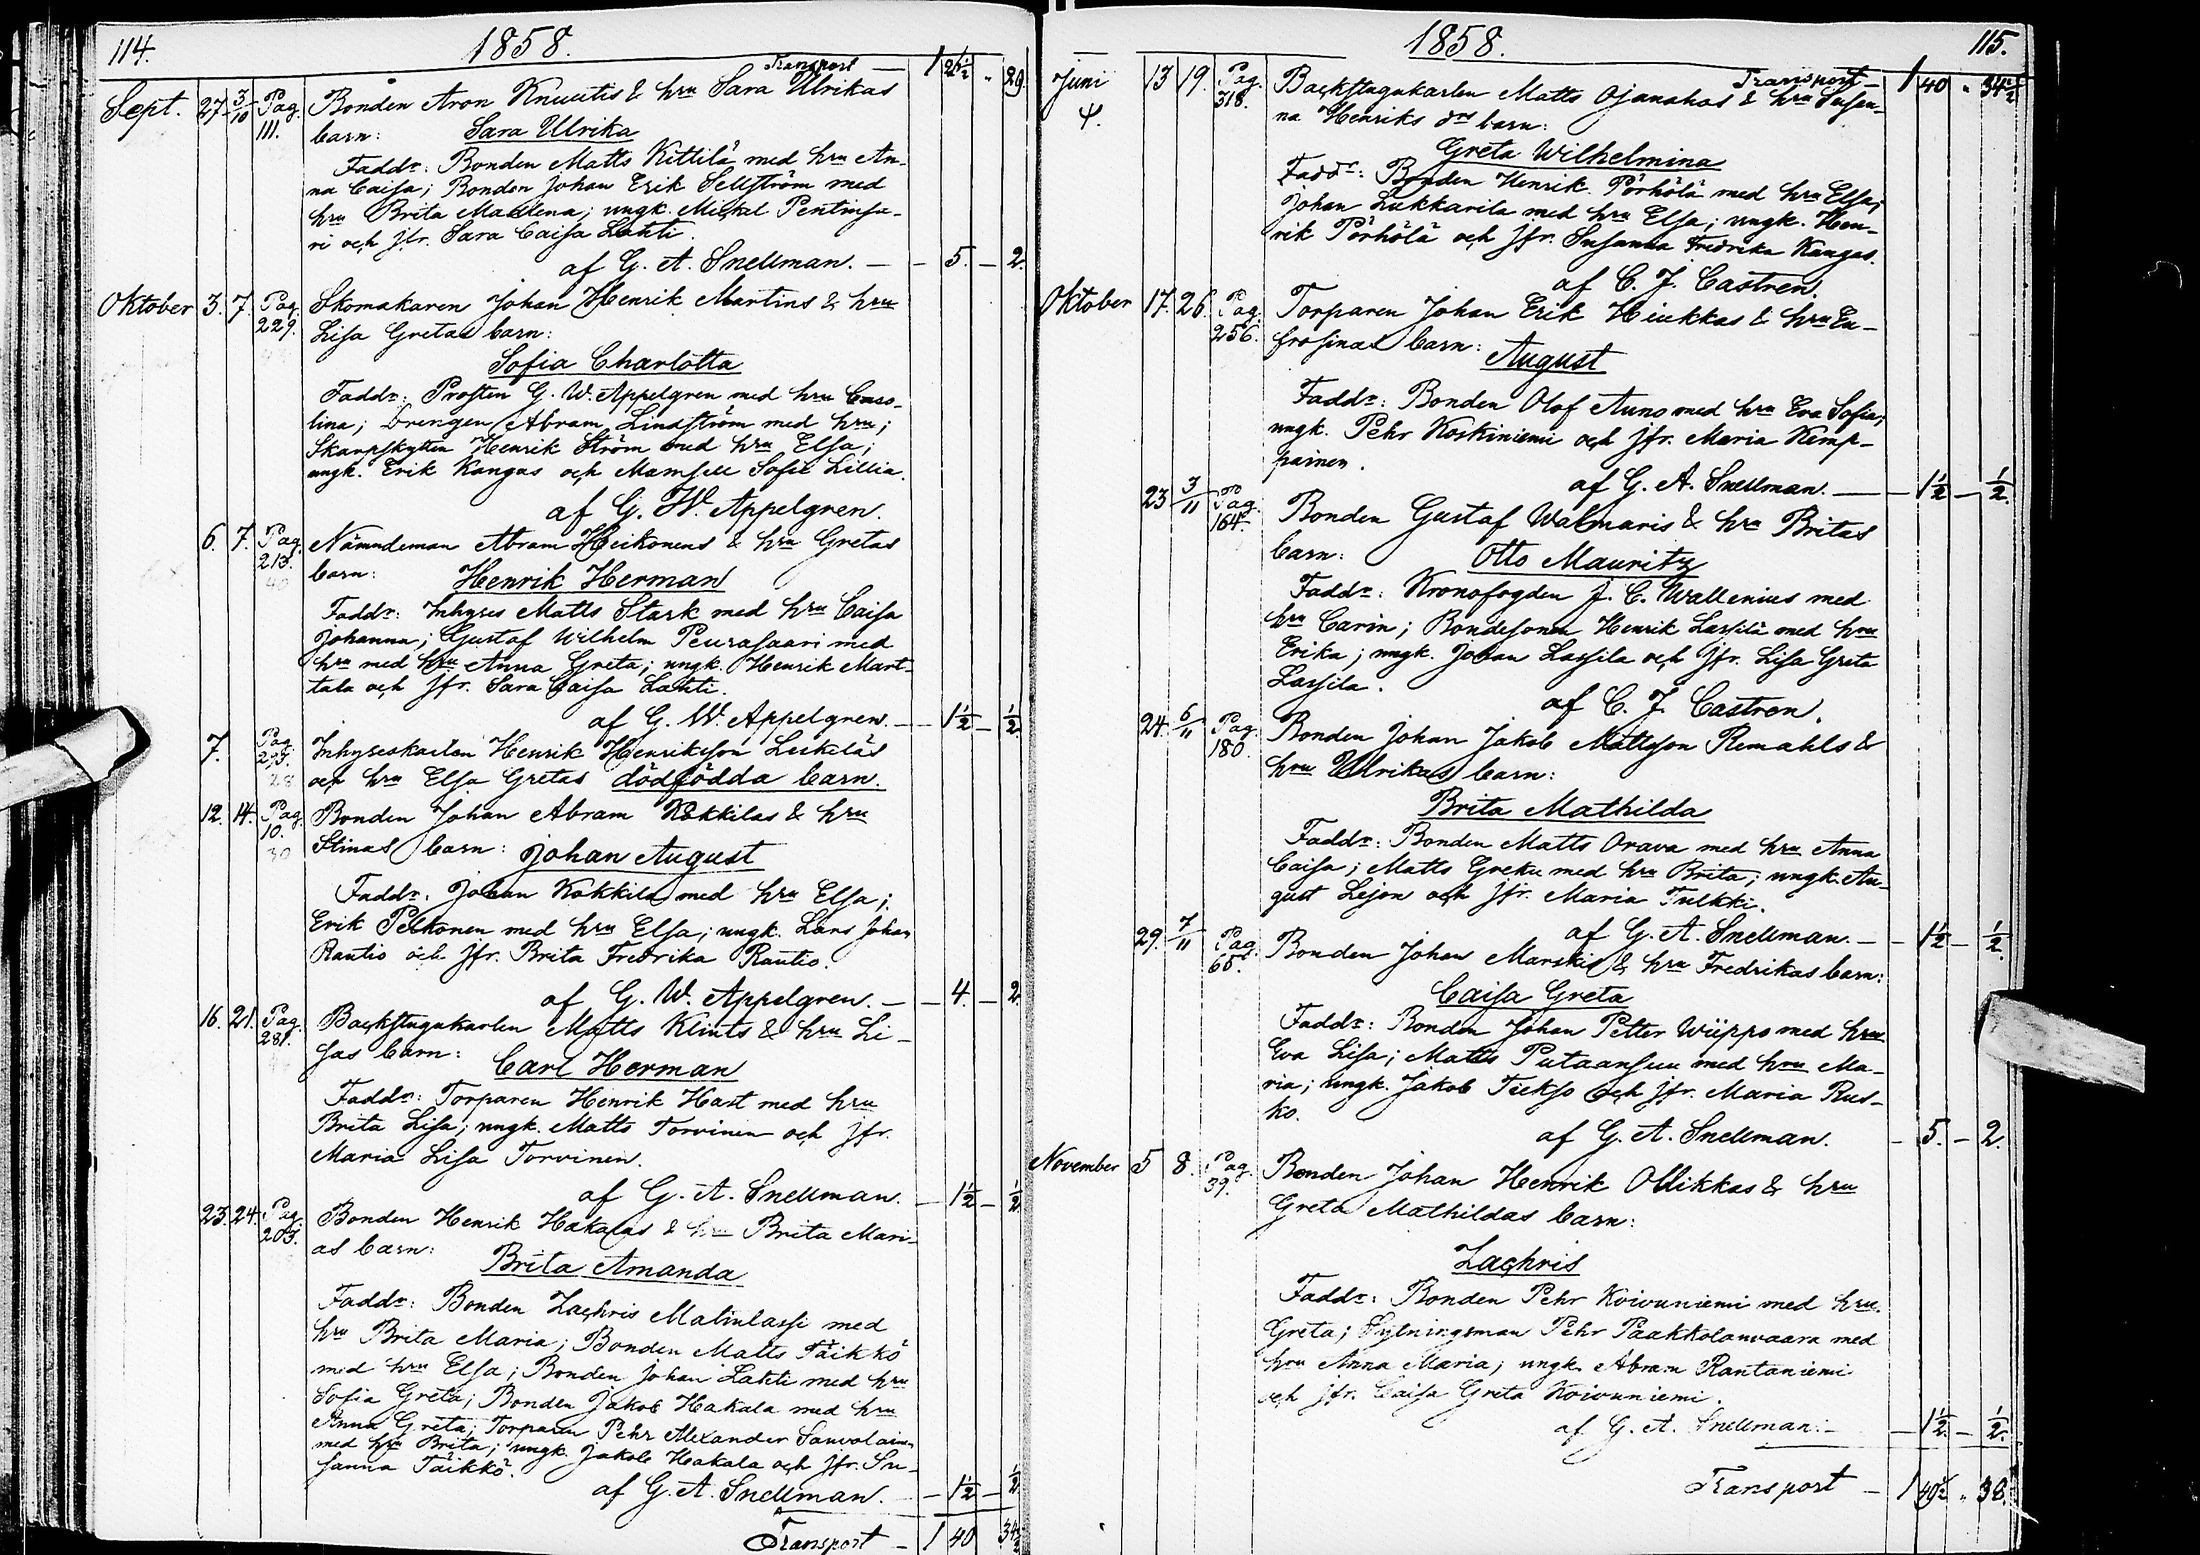 114. 1858.
Transport — 1 26½ „ 29.
Sept. 27. 3/10 Pag. 111. Bonden Aron Knuutis & hru Sara Ulrikas
barn: Sara Ulrika
Faddr: Bonden Matts Kittilä med hru An-
na Caisa; Bonden Johan Erik Sellström med
hru Brita Madlena; ungk. Mickel Pentinsa-
ri och jfr. Sara Caisa Lahti.
af G. A. Snellman. — — 5. — 2.
Oktober 3. 7. Pag. 229. Skomakaren Johan Henrik Martins & hru
Lisa Gretas barn:
Sofia Charlotta
Faddr: Prosten G. W. Appelgren med hru Caro-
lina; Drengen Abram Lindström med hru;
Skarpskytten Henrik Ström med hru Elsa;
ungk. Erik Kangas och Mamsell Sofie Lillia.
af G. W. Appelgren.
6. 7. Pag. 213. Nämndeman Abram Heikonens & hru Gretas
barn: Henrik Herman
Faddr: Inhyses Matts Stark med hru Caisa
Johanna; Gustaf Wilhelm Peurasaari med
hru med hru Anna Greta; ungk. Henrik Mart-
tala och jfr. Sara Caisa Lahti.
af G. W. Appelgren. — — 1½ — ½
7. Pag. Inhyseskarlen Henrik Henriksson Leskeläs
och hru Elsa Gretas dödfödda barn.
12. 14. Pag. 10. 30 Bonden Johan Abram Kokkilas & hru
Stinas barn: Johan August
Faddr: Johan Kokkila med hru Elsa;
Erik Pelkonen med hru Elsa; ungk. Lars Johan
Rautio och jfr. Brita Fredrika Rautio.
af G. W. Appelgren. — — 4. — 2.
16. 21. Pag. 281. Backstugukarlen Matts Klints & hru Li-
sas barn: Carl Herman
Faddr: Torparen Henrik Hast med hru
Brita Lisa; ungk. Matts Torvinen och jfr.
Maria Lisa Torvinen.
af G. A. Snellman. — 1½ — ½
23. 24. Pag. 203. Bonden Henrik Hakalas & hru Brita Mari-
as barn: Brita Amanda
Faddr: Bonden Zachris Matinlassi med
hru Brita Maria; Bonden Matts Täikkö
med hru Elsa; Bonden Johan Lahti med hru
Sofia Greta; Bonden Jakob Hakala med hru
Anna Greta; Torparen Pehr Alexander Sauvolainen
med hru Brita; ungk. Jakob Hakala och jfr. Su-
sanna Täikkö.
af G. A. Snellman. — 1½ — ½
Transport — 1 40 34½
1858. 115.
Transport — 1 40 „ 34½
Juni 13 19. Pag. 318. Backstugukarlen Matts Ojanahos & hru Susan-
na Henriks drs barn:
Greta Wilhelmina
Faddr: Bonden Henrik Pörhölä med hru Elsa;
Johan Lukkarila med hru Elsa; ungk. Hen-
rik Pörhölä och jfr. Susanna Fredrika Kangas.
af C. J. Castren.
Oktober 17. 26. Pag. 256. Torparen Johan Erik Hiukkas & hru Eu-
frosinas barn: August
Faddr: Bonden Olof Auno med hru Eva Sofia;
ungk. Pehr Koskiniemi och jfr. Maria Kemp-
painen.
af G. A. Snellman. — — 1½ — ½.
23 3/11 Pag. 164. Bonden Gustaf Walmaris & hru Britas
barn: Otto Mauritz
Faddr: Kronofogden J. C. Wallenius med
hru Carin; Bondesonen Henrik Lassila med hru
Erika; ungk. Johan Lassila och jfr. Lisa Greta
Lassila.
af C. J. Castren.
24. 6/11 Pag. 180. Bonden Johan Jakob Mattsson Remahls &
hru Ulrikas barn:
Brita Mathilda
Faddr: Bonden Matts Orava med hru Anna
Caisa; Matts Greku med hru Brita; ungk. Au-
gust Lejon och jfr. Maria Tulkki.
af G. A. Snellman. — — 1½ — ½.
29. 7/11 Pag. 65. Bonden Johan Marskis & hru Fredrikas barn:
Caisa Greta
Faddr: Bonden Johan Petter Wiippo med hru
Eva Lisa; Matts Putaansuu med hru Ma-
ria; ungk. Jakob Tiekso och jfr. Maria Rus-
ko.
af G. A. Snellman. — 5. — 2.
November 5 8. Pag. 39. Bonden Johan Henrik Ollikkas & hru
Greta Mathildas barn:
Zachris
Faddr: Bonden Pehr Koivuniemi med hru
Greta; Sytningsman Pehr Paakkolanvaara med
hru Anna Maria; ungk. Abram Rantaniemi
och jfr. Caisa Greta Koivuniemi.
af G. A. Snellman. — — 1½ — ½.
Transport — 1 49½ „ 38.